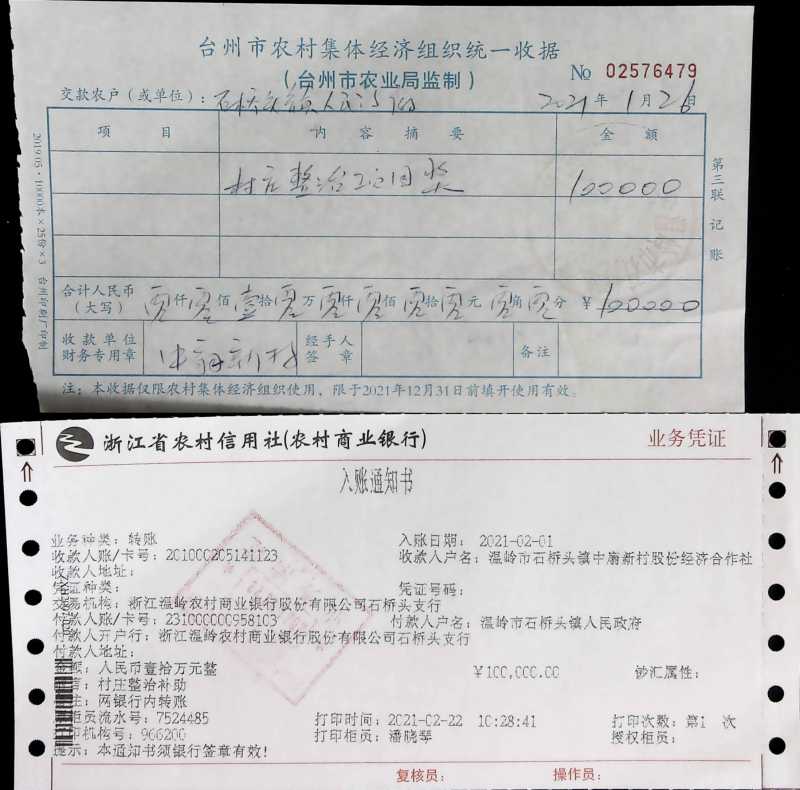 台州市农村集体经济组织统一收据
(台州市农业局监制)
№ 02576479
交款农户(或单位): 石桥头镇人民政府 2021年1月26日
项 目 内 容 摘 要 金 额
村庄整治工程回奖 100000
合计人民币(大写) 零仟零佰壹拾零万零仟零佰零拾零元零角零分 ¥100000
收款单位财务专用章 中扇新村 经手人签章 备注
注:本收据仅限农村集体经济组织使用,限于2021年12月31日前填开使用有效。
第三联 记账
2019.05·10000本×25份×3 台州印刷厂印制
浙江省农村信用社(农村商业银行) 业务凭证
入账通知书
业务种类:转账 入账日期: 2021-02-01
收款人账/卡号:201000205141123 收款人户名:温岭市石桥头镇中扇新村股份经济合作社
收款人地址:
凭证种类: 凭证号码:
交易机构:浙江温岭农村商业银行股份有限公司石桥头支行
付款人账/卡号:231000000958103 付款人户名:温岭市石桥头镇人民政府
付款人开户行:浙江温岭农村商业银行股份有限公司石桥头支行
付款人地址:
金额:人民币壹拾万元整 ¥100,000.00 钞汇属性:
附言:村庄整治补助
备注:网银行内转账
柜员流水号:7524485 打印时间:2021-02-22 10:28:41 打印次数:第1 次
打印机构号:966200 打印柜员:潘晓琴 授权柜员:
提示:本通知书须银行签章有效!
复核员: 操作员: